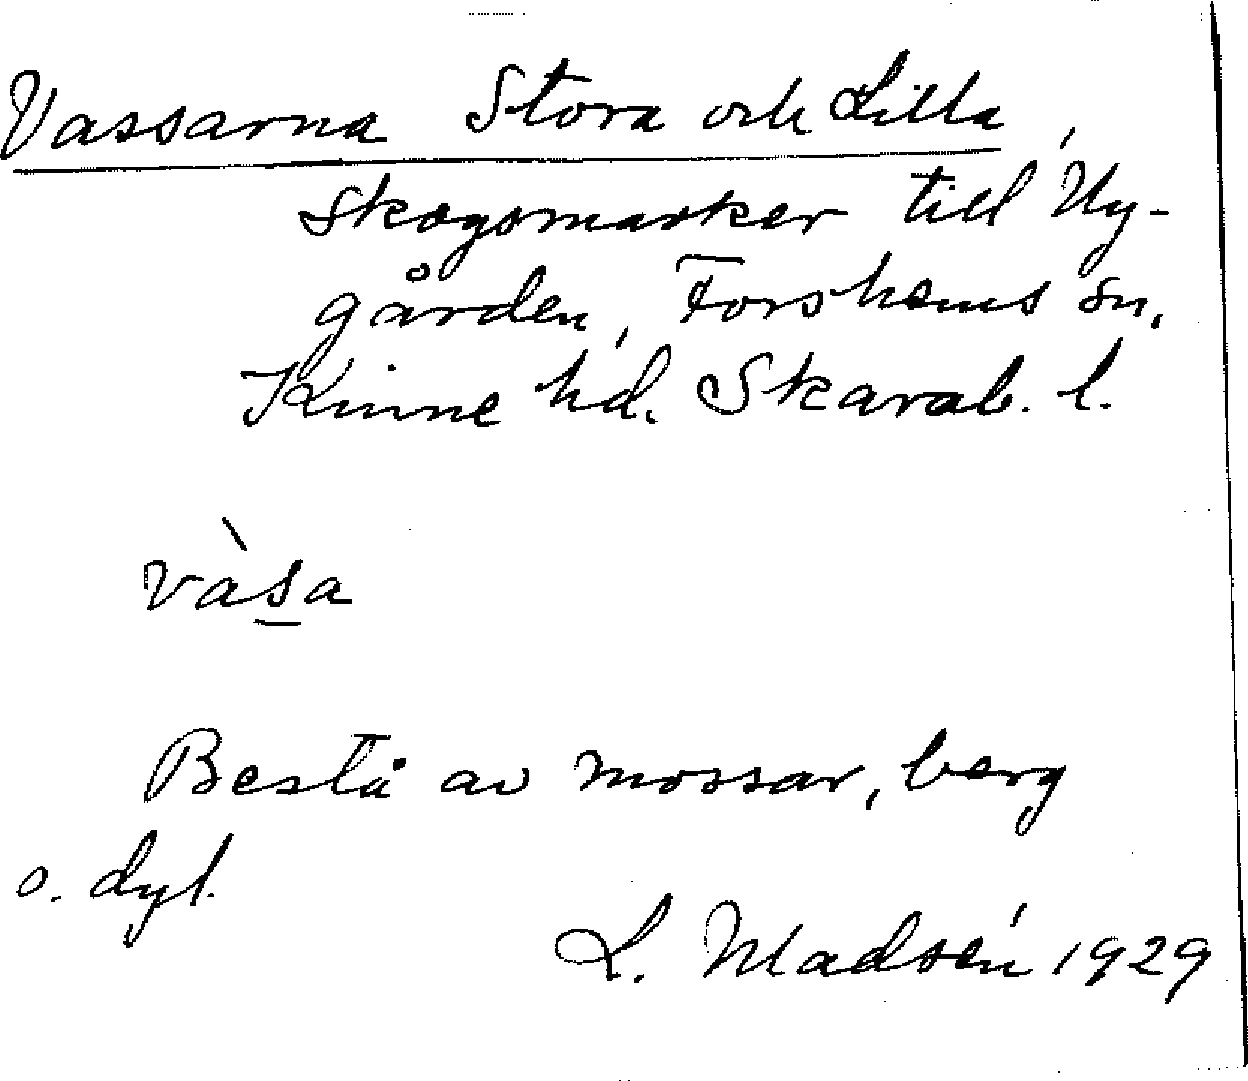 Vassarna Stora och Lilla,
Skogsmarker till Ny-
gården, Forshems sn,
Kinne hd. Skarab. l.
vàsa
Bestå av mossar, berg
o. dyl.
L. Madsén 1929